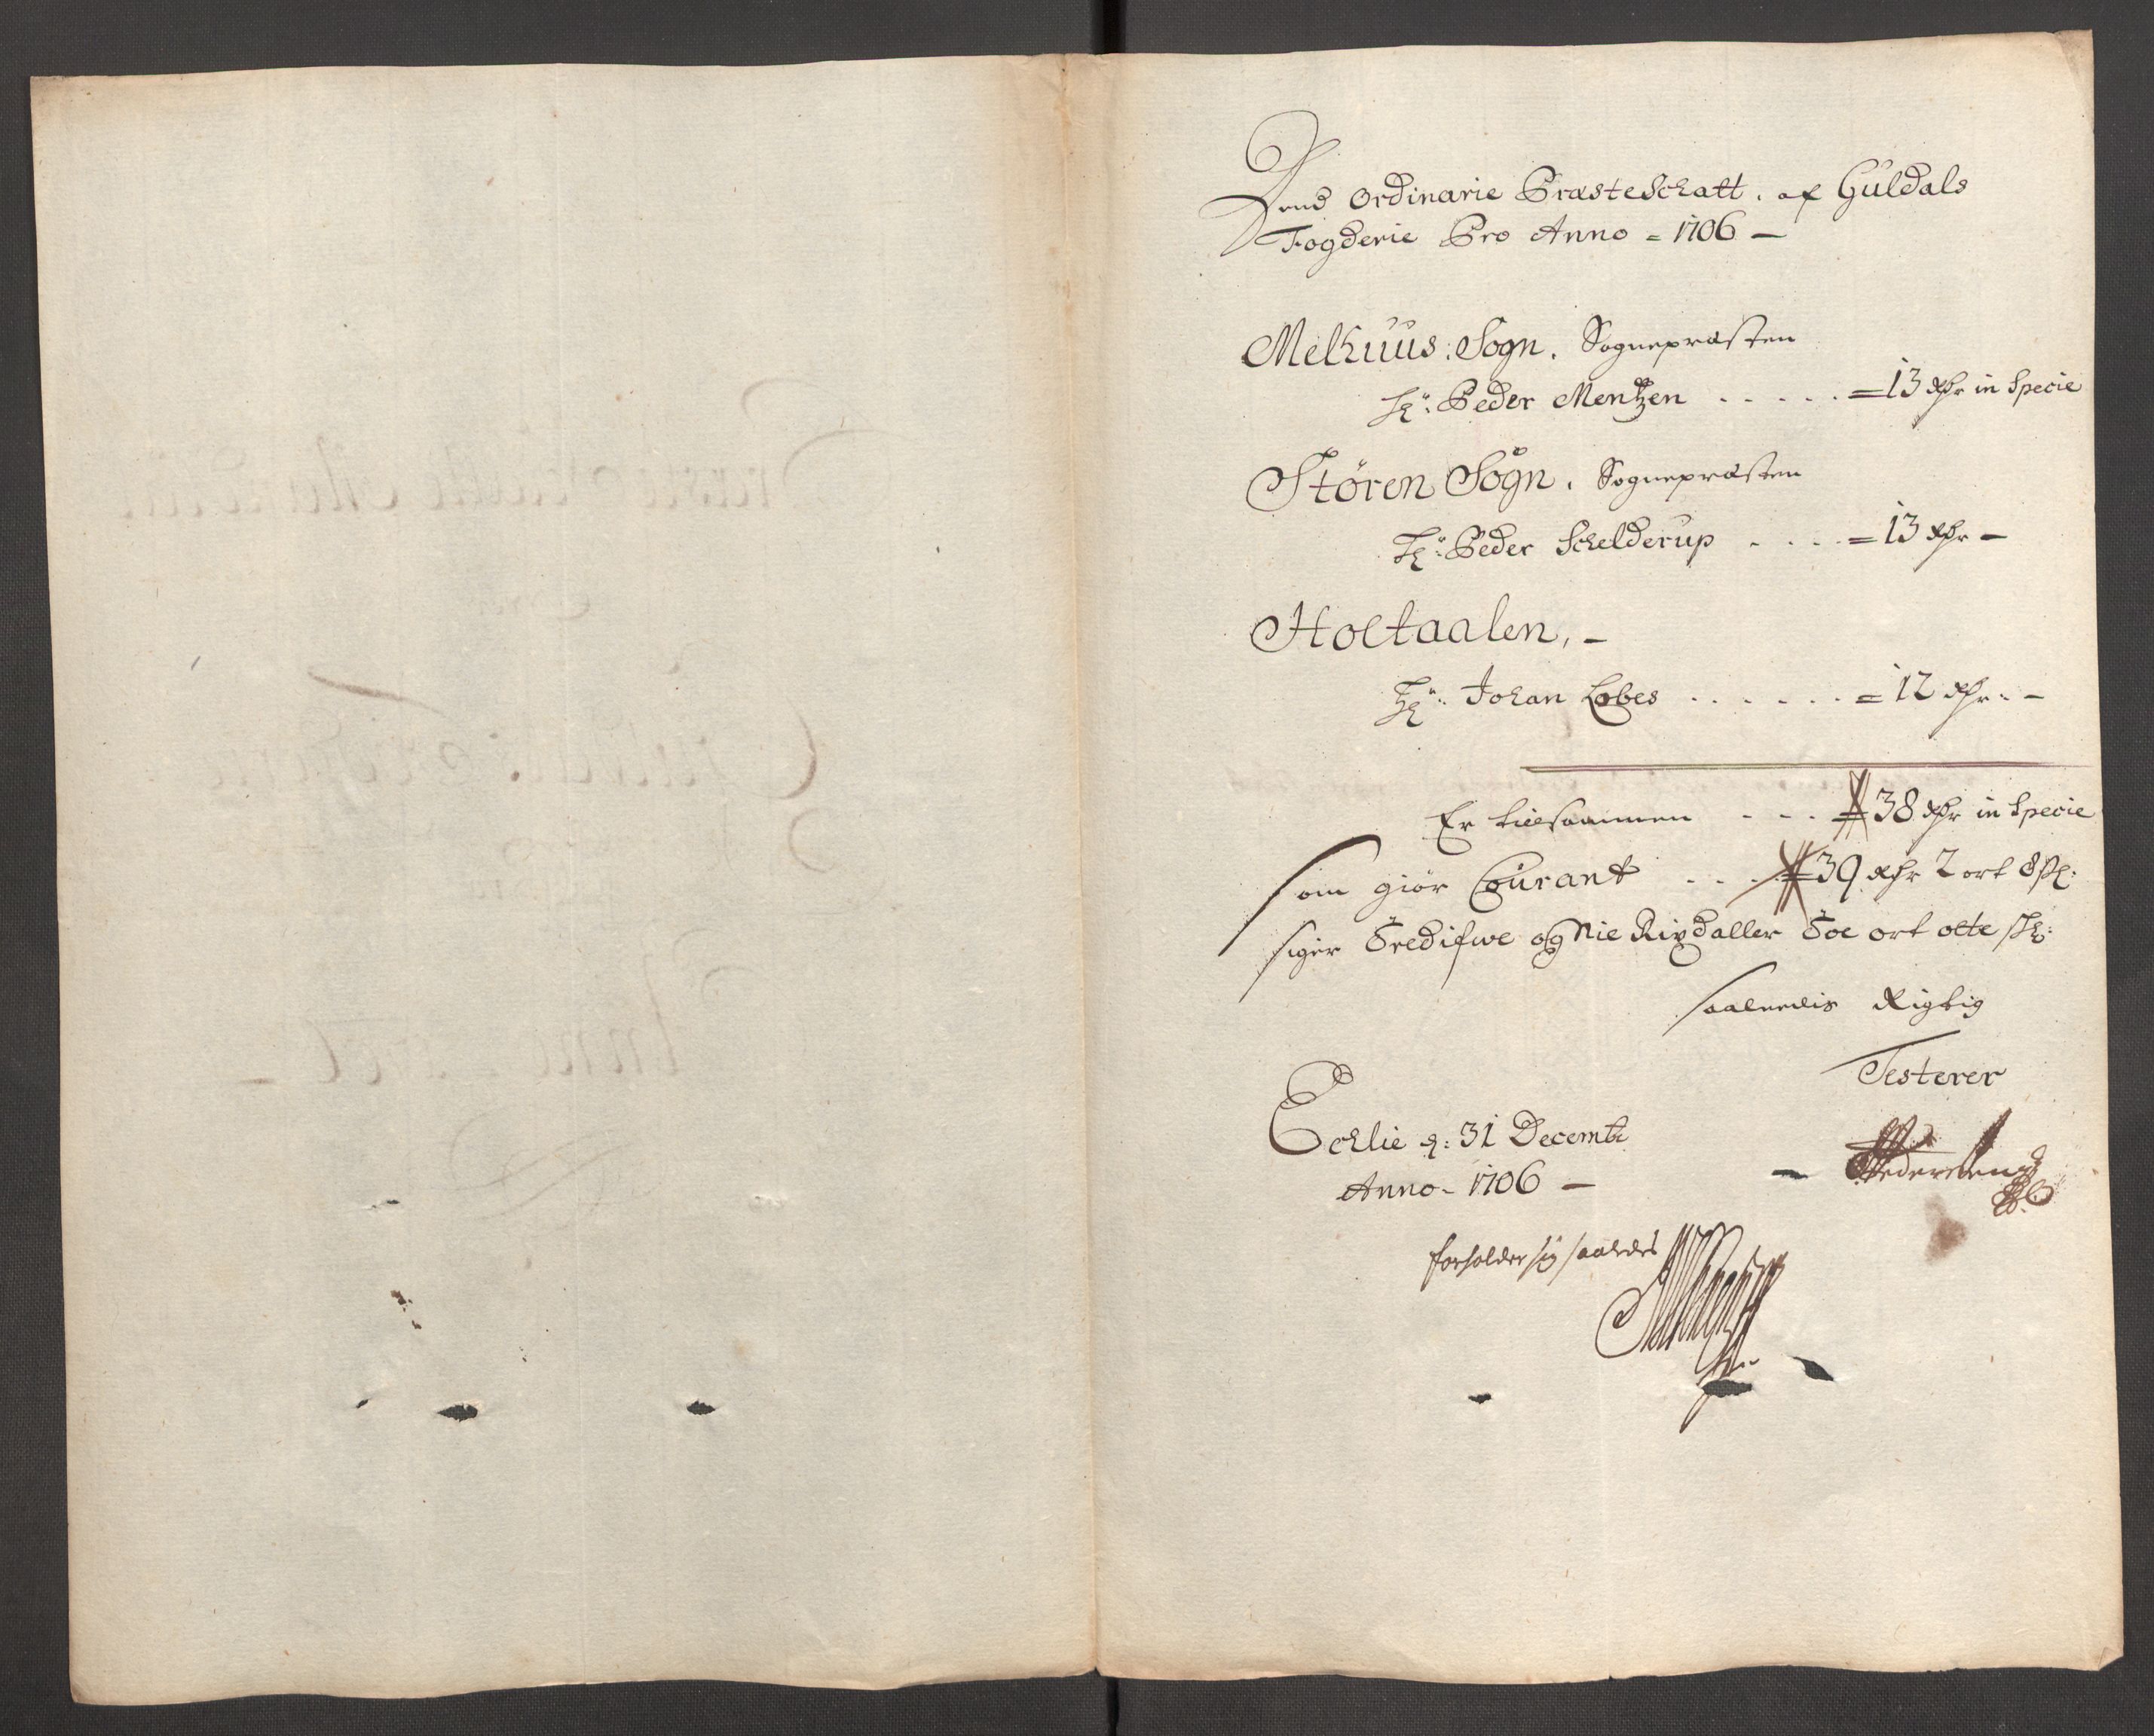 Dend Ordinarie Præsteschatt. af Guldals
Fogderie Pro Anno = 1706 —
Melhuus: Sogn. Sognepræsten
Hr: Peder Mentzen . . . . . = 13 Rdr in Specie
Stören Sogn. Sognepræsten
Hr: Peder Schelderup . . . . = 13 Rdr —
Holtaalen, —
Hr: Johan Lobes . . . . . . = 12 Rdr. —
Er tilsammen . . . 38 Rdr in Specie
som giör Courant . . . 39 Rdr 2 ort 8 sk:
siger Tredifwe og Nie Rixdaller Toe ort otte sk:
saaledis Rigtig
Testerer
Echlie d: 31 Decembr
Anno - 1706 —
forholder sig saaledes